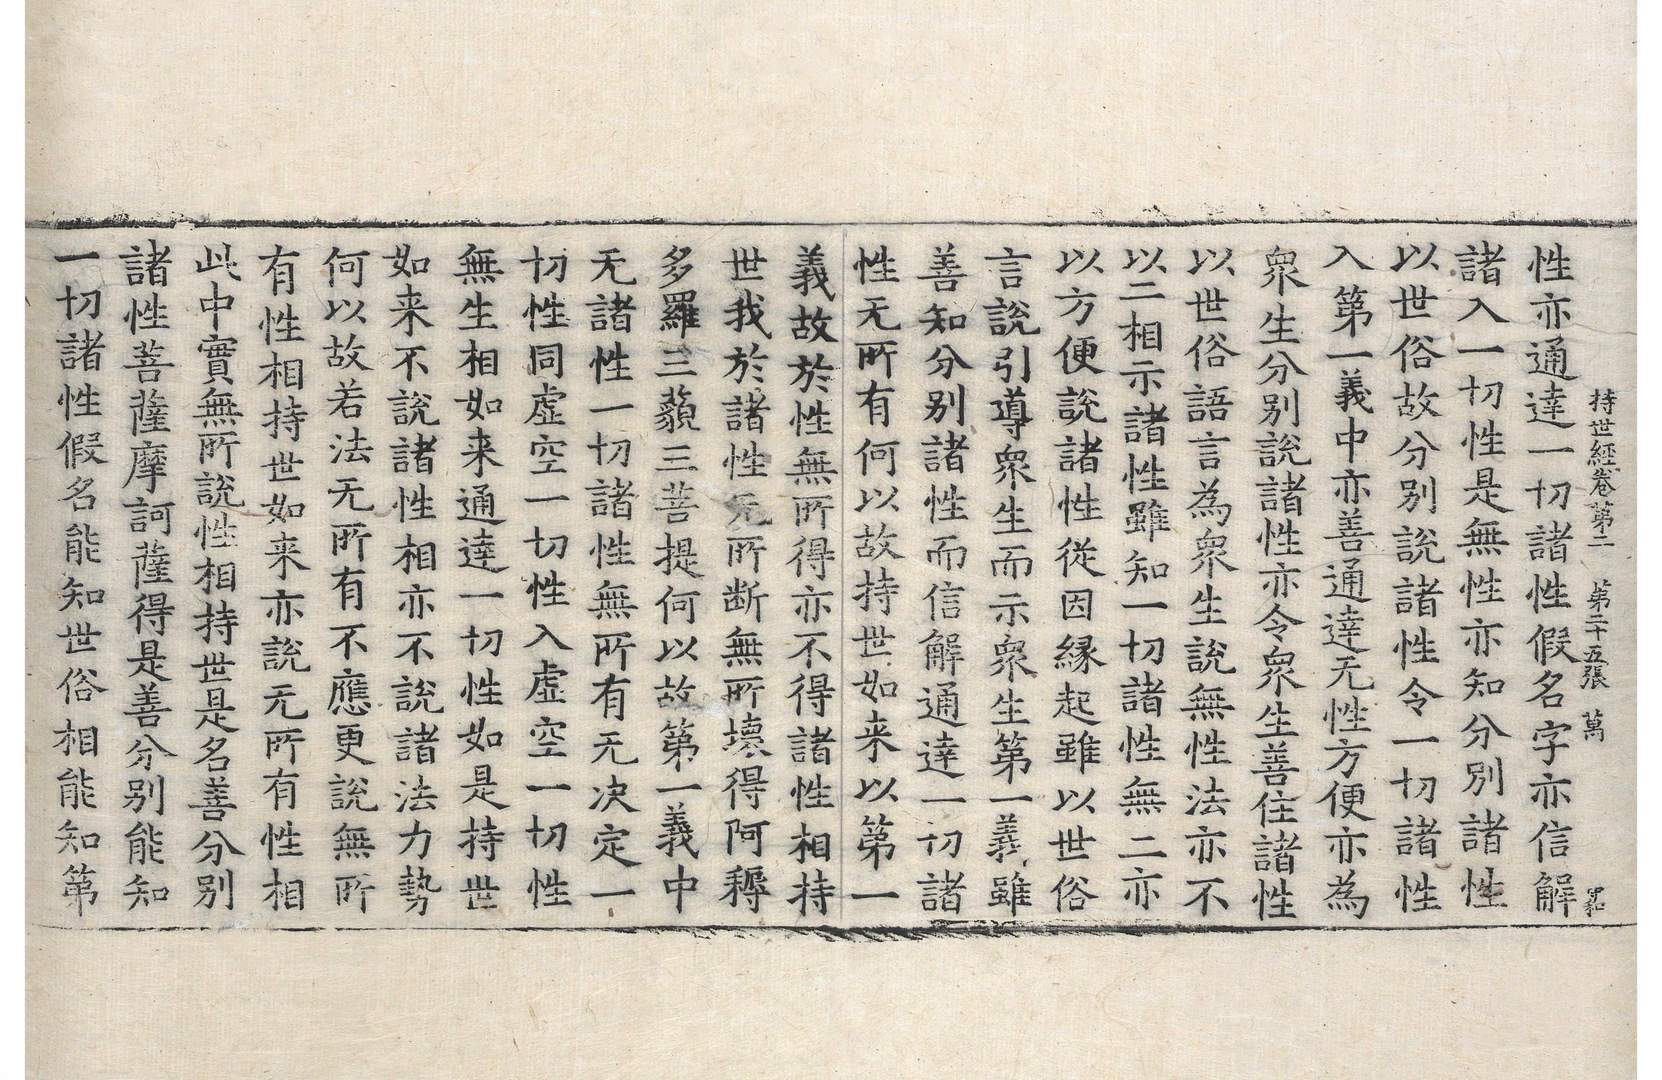 持世經卷第二 第二十五張 萬
性亦通達一切諸性假名字亦信解
諸入一切性是無性亦知分別諸性
以世俗故分別說諸性令一切諸性
入第一義中亦善通達无性方便亦為
衆生分別說諸性亦令衆生善住諸性
以世俗語言為衆生說無性法亦不
以二相示諸性雖知一切諸性無二亦
以方便說諸性從因緣起雖以世俗
言說引導衆生而示衆生第一義雖
善知分別諸性而信解通達一切諸
性无所有何以故持世如来以第一
義故於性無所得亦不得諸性相持
世我於諸性无所断無所壞得阿耨
多羅三藐三菩提何以故第一義中
无諸性一切諸性無所有无决定一
切性同虛空一切性入虛空一切性
無生相如来通達一切性如是持世
如来不說諸性相亦不說諸法力勢
何以故若法无所有不應更說無所
有性相持世如来亦說无所有性相
此中實無所說性相持世是名善分別
諸性菩薩摩訶薩得是善分別能知
一切諸性假名能知世俗相能知第